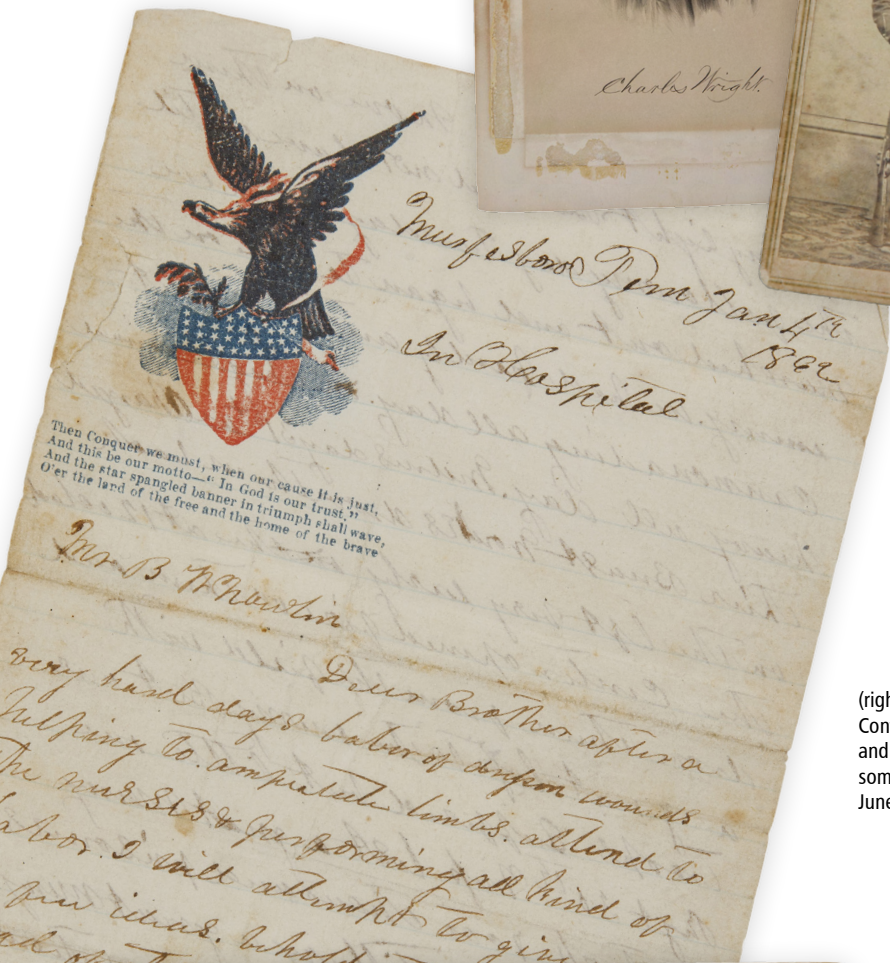 Charles Wright.
Murfesboro Tenn Jan 4th
1862
In Hospital
Then Conquer we must, when our cause it is just,
And this be our motto—"In God is our trust."
And the star spangled banner in triumph shall wave,
O'er the land of the free and the home of the brave
Mr B W
Dear Brother after a
very hard days labor of dressin wounds
helping to amputate limbs. attend to
The nurses & performing all kind of
labor. I will attempt to give
ideas. behold
(righ
Con
and
som
June